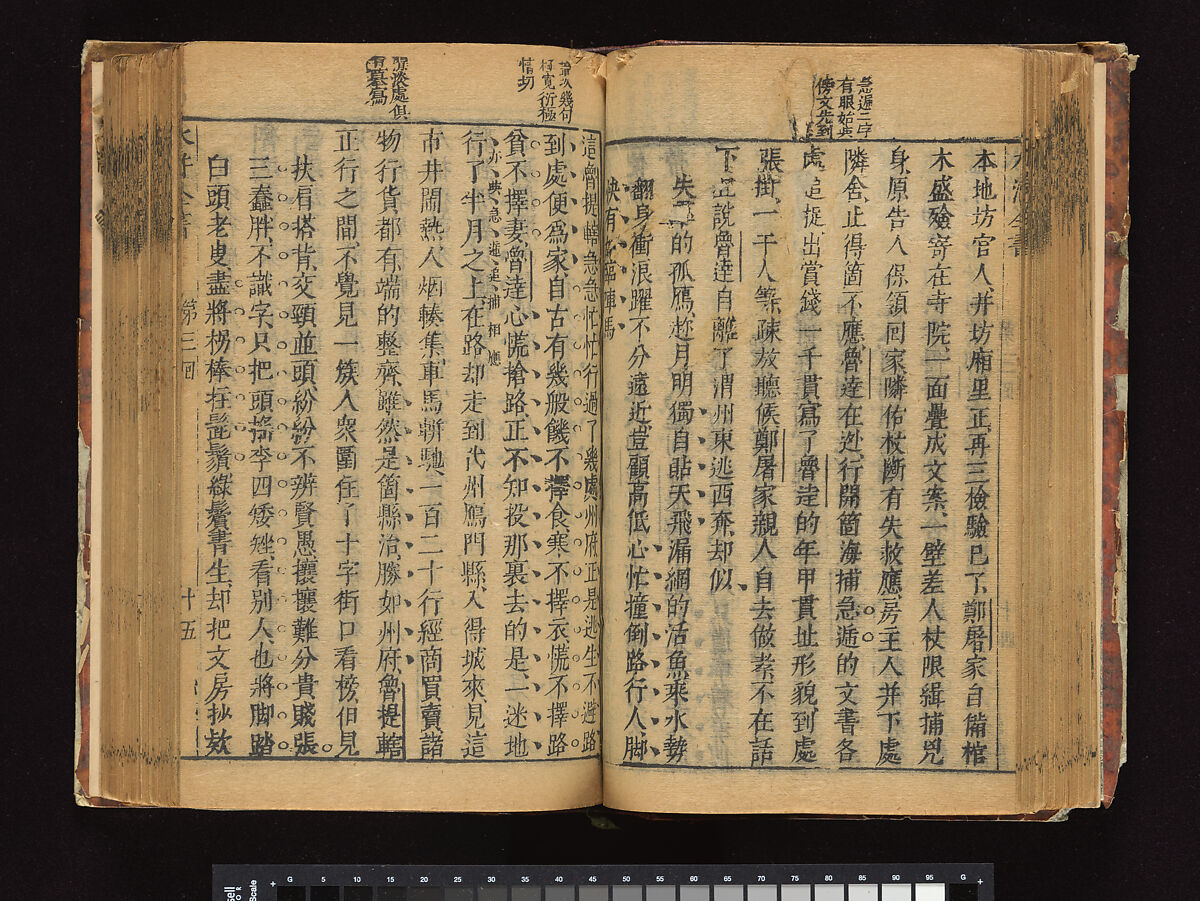 急遞三字
有眼始與
傍文先到
本地坊官人并坊廂里正再三檢驗已了鄭屠家自備棺
木盛殮寄在寺院一面疊成文案一壁差人杖限緝捕兇
身原告人保領回家隣佑杖斷有失救應房主人并下處
隣舍止得箇不應魯達在逃行開箇海捕急遞的文書各
處追捉出賞錢一千貫寫了魯達的年甲貫址形貌到處
張掛一干人等疎放聽候鄭屠家親人自去做孝不在話
下且說魯達自離了渭州東逃西奔却似
失羣的孤鴈趂月明獨自貼天飛漏網的活魚乘水勢
翻身衝浪躍不分遠近豈顧高低心忙撞倒路行人脚
快有如臨陣馬
這魯提轄急急忙忙行過了幾處州府正是逃生不避路
到處便爲家自古有幾般饑不擇食寒不擇衣慌不擇路
貧不擇妻魯達心慌搶路正不知投那裏去的是一迷地
亦與急遞追捕相應
行了半月之上在路却走到代州鴈門縣入得城來見這
市井鬧熱人烟輳集車馬駢馳一百二十行經商買賣諸
物行貨都有端的整齊雖然是箇縣治勝如州府魯提轄
正行之間不覺見一簇人衆圍住了十字街口看榜但見
扶肩搭背交頸並頭紛紛不辨賢愚攘攘難分貴賤張
三蠢胖不識字只把頭搖李四矮矬看別人也將脚踏
白頭老叟盡將柺棒拄髭鬚綠鬢書生却把文房抄欵
第三回
十五